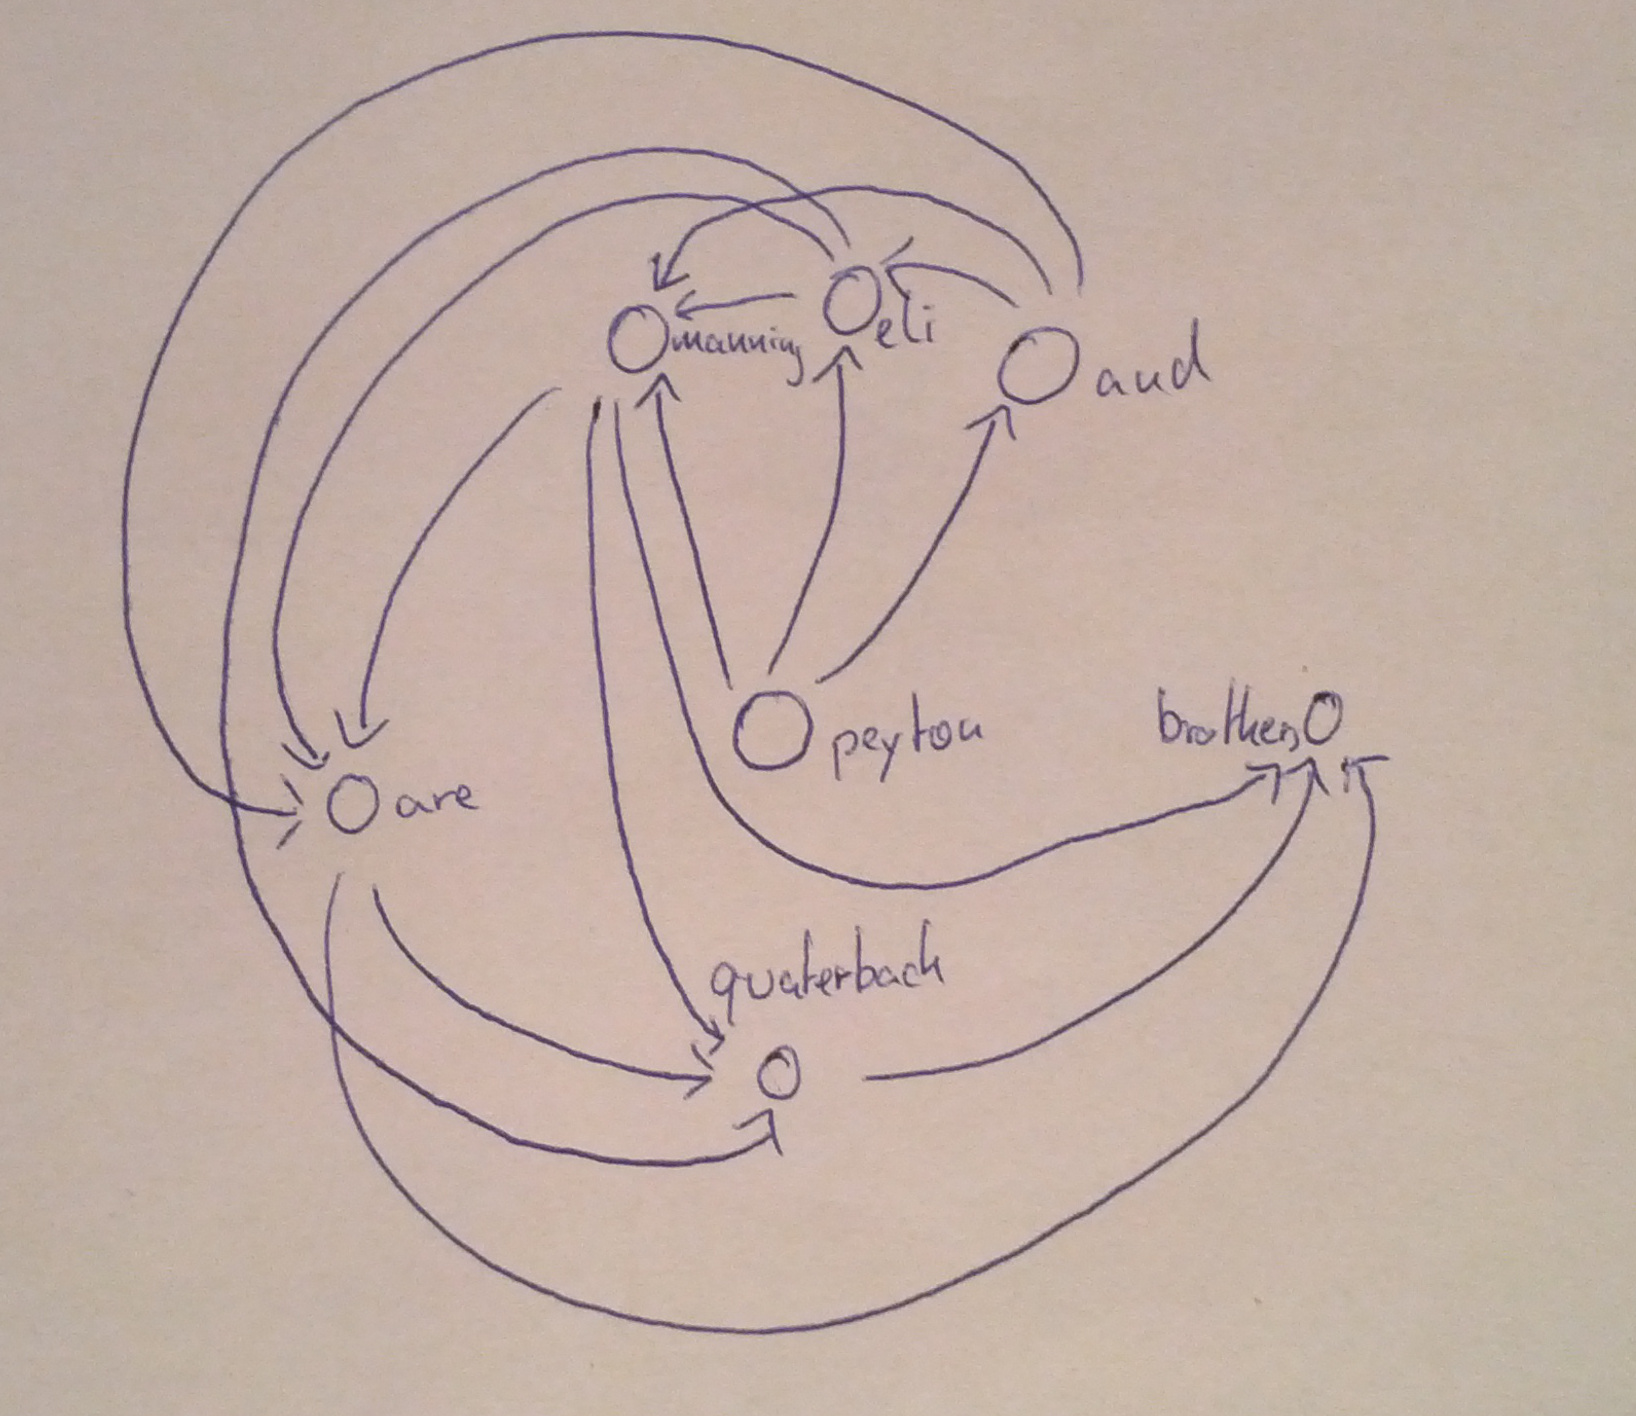 manning
eli
and
peyton
brothers
are
quaterback